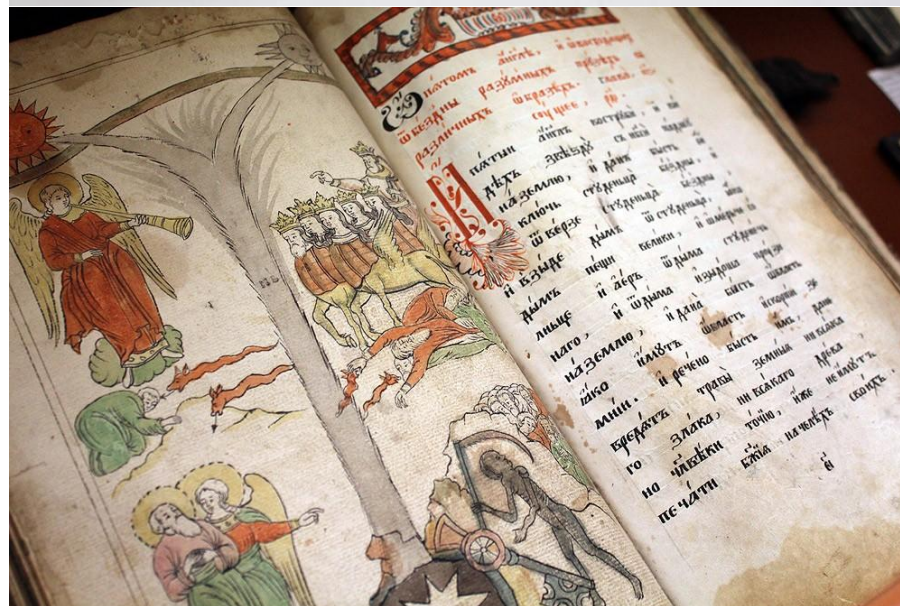 Ѡ пѧтомъ а҆́гг҃лѣ, и҆
ѿ бездны прꙋзѣхъ
различныхъ ѡбразѣхъ. глава,
сꙋщее,
И пѧтыи а҆́гг҃лъ вострꙋби, и ви
дѣхъ звѣздꙋ съ нб҃сѐ падшꙋ
на землю, и҆ данъ бысть
ключь стꙋденьца бездны, и҆
ѿверзе бездны
и҆ взыде дымъ ѿ стꙋденьца,
дымъ пещи велики, и҆
лнце и҆ аеръ ѿ дыма
наго, и҆ ѿ дыма изыдоша прꙋзи
на землю, и҆ дана бысть ѡбласть
ꙗко имꙋтъ ѡбласть скорпи зе
мнїи. и҆ речено бысть имъ, да не
вредѧтъ травы земныѧ ни всѧка
го злака, ни всѧкаго древа,
но чл҃вѣки точїю, иже не имꙋтъ
печати бж҃їѧ на челѣхъ своихъ.